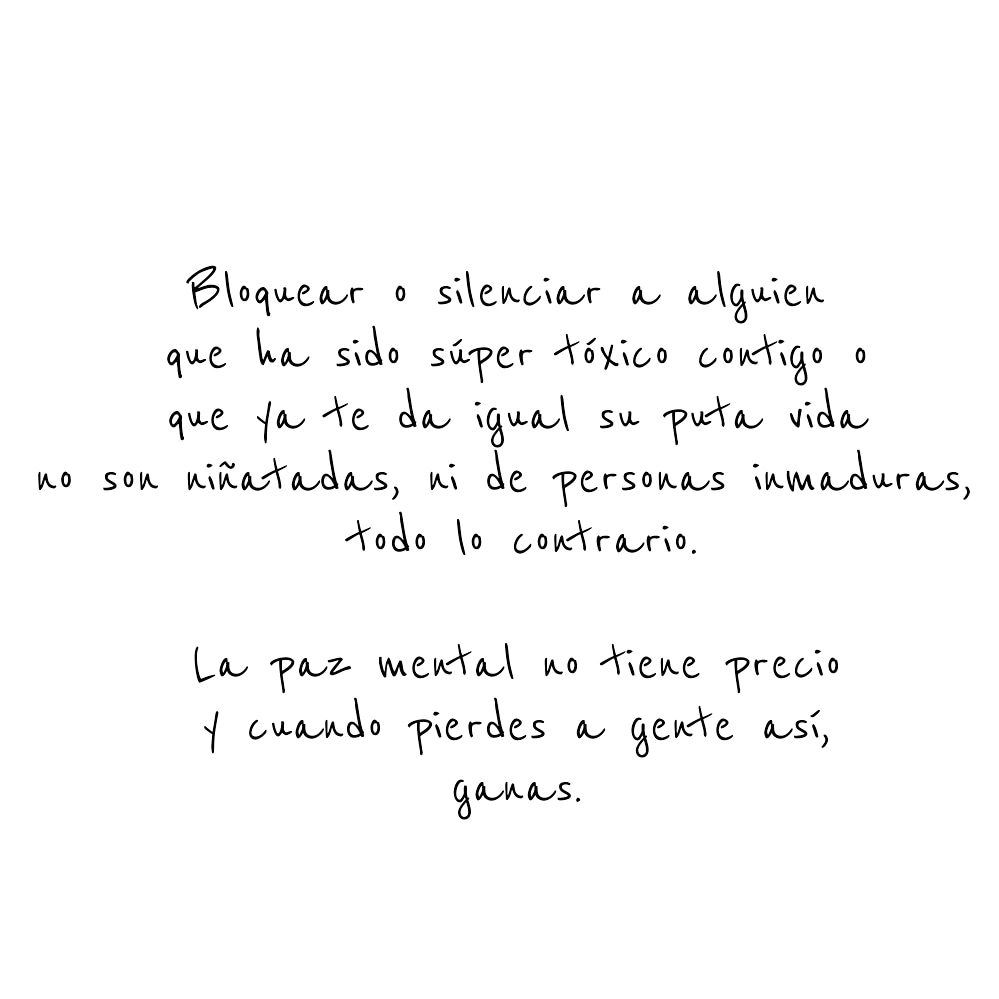 Bloquear o silenciar a alguien
que ha sido súper tóxico contigo o
que ya te da igual su puta vida
no son niñatadas, ni de personas inmaduras,
todo lo contrario.
La paz mental no tiene precio
y cuando pierdes a gente así,
ganas.